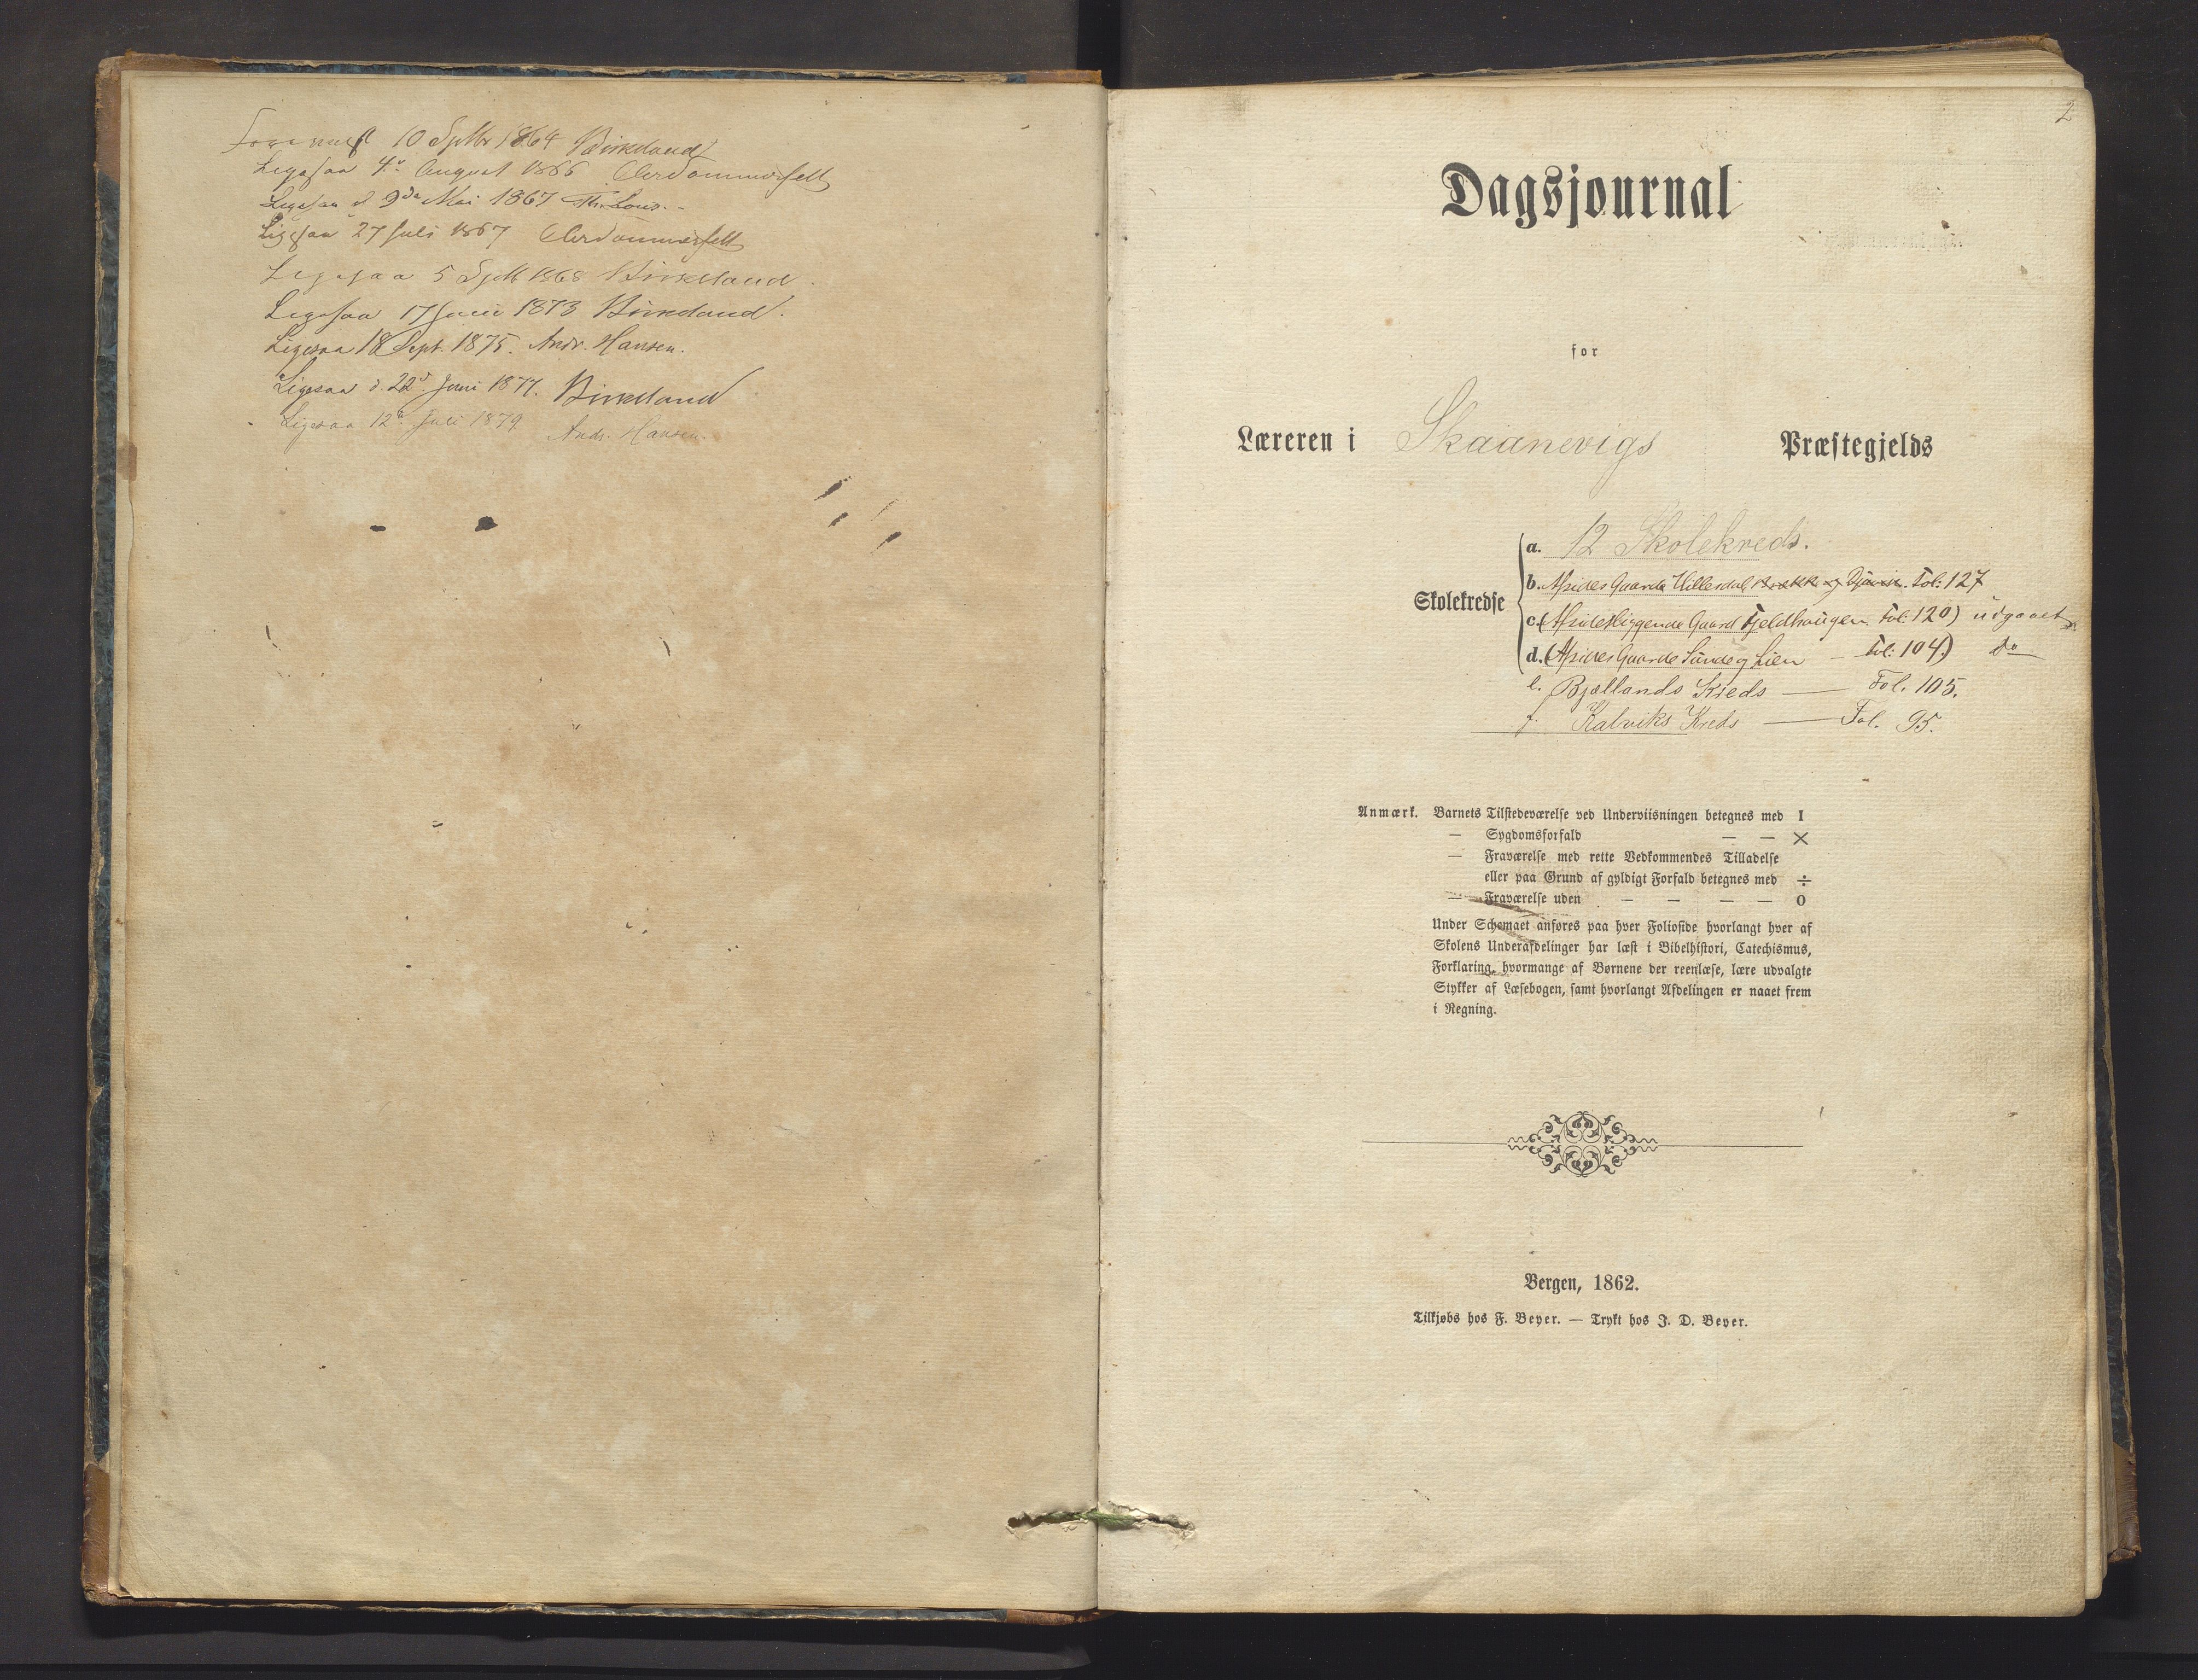 Forevaest 10 Septbr 1864 Birkeland
Ligesaa 4de August 1866
Ligesaa d 9de Mai 1867
Ligesaa 27 Juli 1867
Ligesaa 5 Septb 1868 Birkeland.
Ligesaa 17 Juni 1873 Birkeland.
Ligesaa 18 Sept. 1875. Andr. Hansen.
Ligesaa d. 22d. Juni 1877. Birkeland
Ligesaa 12te Juli 1879. Andr. Hansen.
2
Dagsjournal
for
Læreren i Skaanevigs Præstegjelds
Skolekredse
a. 12 Skolekreds.
b. Afsides Gaarde Ulllesdal Brekke og Djuvik. Fol: 127
c. (Afsidesliggende Gaard Fjeldhaugen. Fol: 120) udgaaet
d. (Afsides Gaarde Sunde og Lien — Fol: 104) do
e. Bjællands Kreds — Fol. 105.
f. Kalviks Kreds — Fol. 95.
Anmærk. Barnets Tilstedeværelse ved Underviisningen betegnes med I
— Sygdomsforfald — — ×
— Fraværelse med rette Vedkommendes Tilladelse
eller paa Grund af gyldigt Forfald betegnes med ÷
— Fraværelse uden — — — — 0
Under Schemaet anføres paa hver Folioside hvorlangt hver af
Skolens Underafdelinger har læst i Bibelhistori, Catechismus,
Forklaring, hvormange af Børnene der reenlæse, lære udvalgte
Stykker af Læsebogen, samt hvorlangt Afdelingen er naaet frem
i Regning.
Bergen, 1862.
Tilkjøbs hos F. Beyer. — Trykt hos J. D. Beyer.